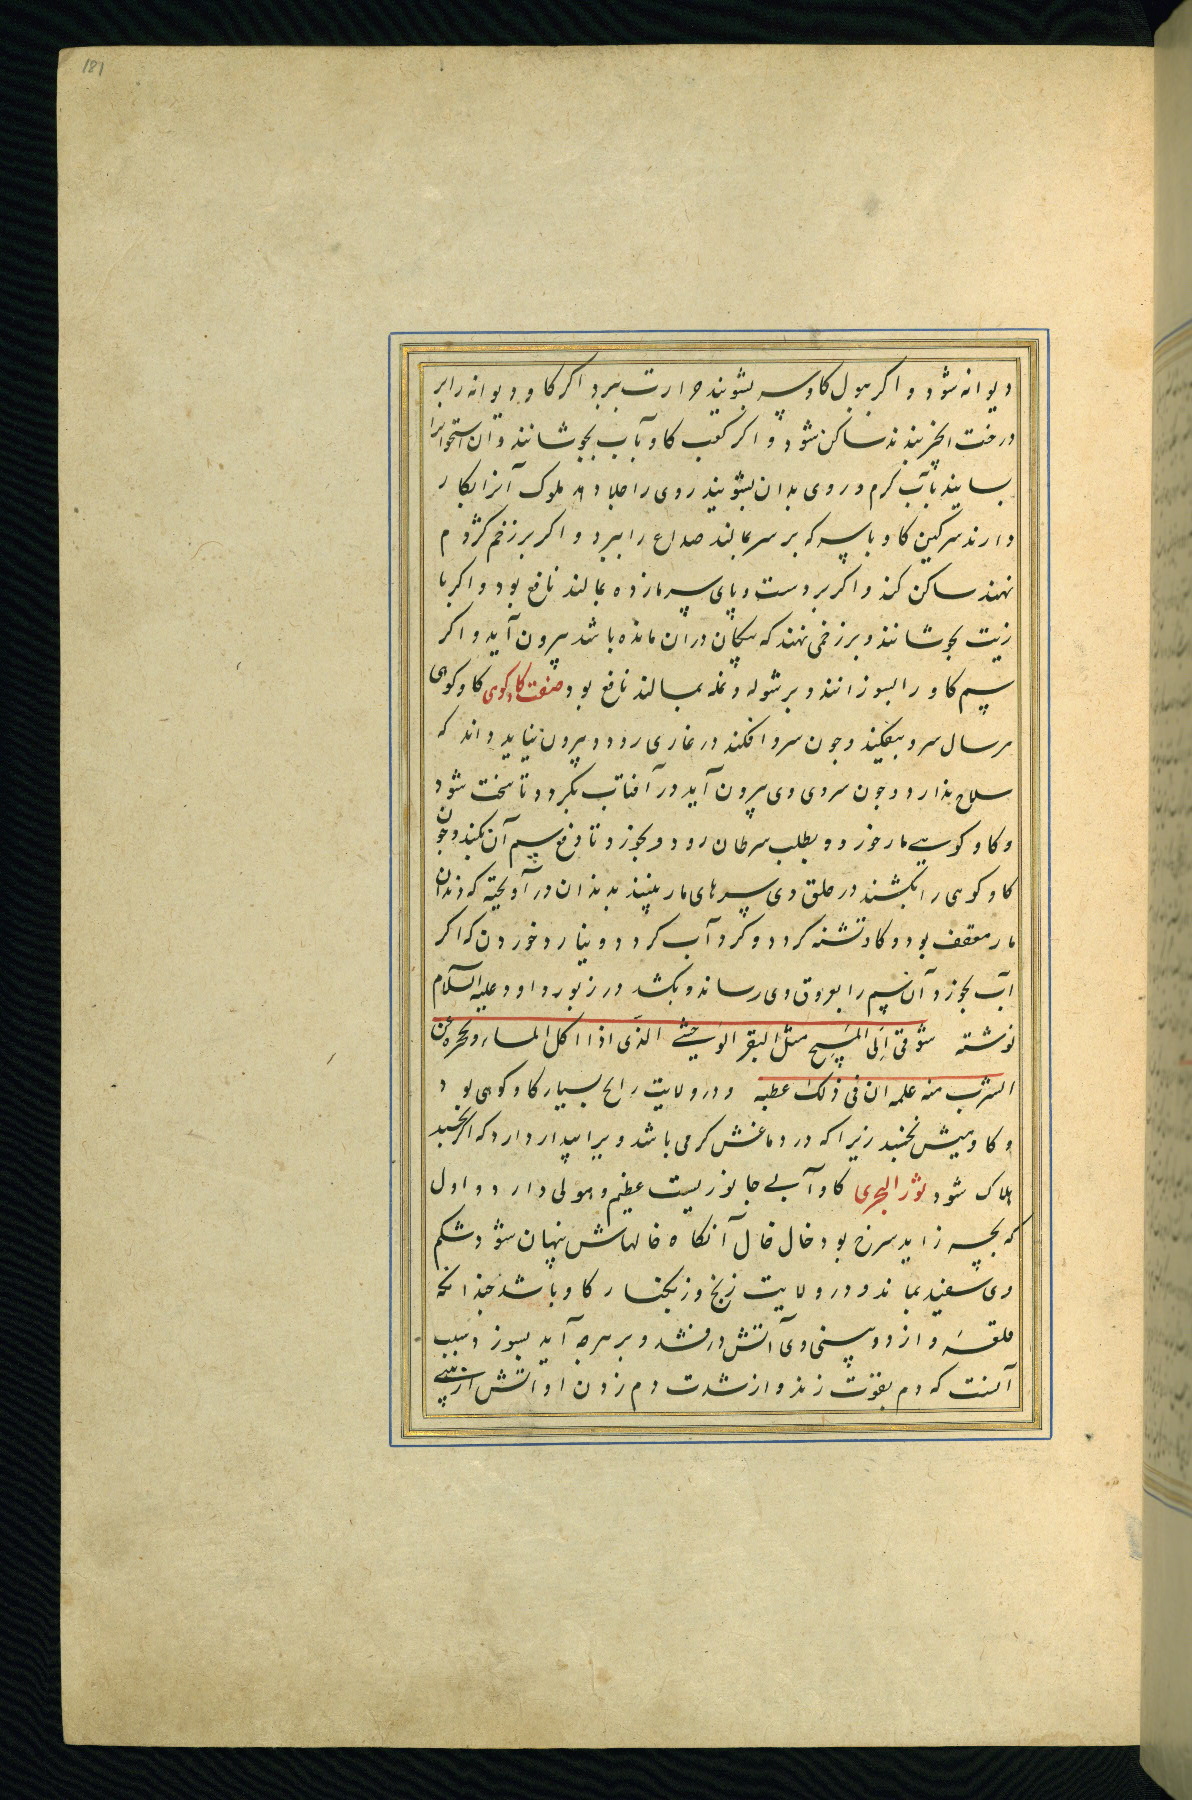 181
دیوانه شود و اکر ببول کاو سپید بشویند حرارت ببرد اکر کاو دیوانه را بر
درخت انجیر بندند ساکن شود و اکر کعب کاو بآب بجوشانند و آن استخوانرا
بسایند بآب کرم و روی بدان بشویند روی را جلا دهد ملوک آنرا بکار
دارند سرکین کاو با سپر که بر سر بمالند صداع را ببرد و اکر بر زخم کژدم
نهند ساکن کند و اکر بر دست و پای سرما زده بمالند نافع بود و اکر با
زیت بجوشانند و بر زخمی نهند که پیکان در ان مانده باشد بیرون آید و اکر
سم کاو را بسوزانند و بر شوله و نمله بمالند نافع بود صفت کاو کوهی کاو کوهی
هر سال سرو بیفکند و جون سرو افکند در غاری رود و بیرون نیاید داند که
سلاح ندارد و جون سروی وی بیرون آید در آفتاب بکردد تا سخت شود
و کاو کوهی مار خورد و بطلب سرطان رود و بخورد تا دفع سم آن بکند و جون
کاو کوهی را بکشند در حلق وی سرهای مار بینند بدندان در آویخته که دندان
مار معقف بود و کاو تشنه کردد و کرد آب کردد و نیارد خوردن که اکر
آب بخورد آن سم را بعروق وی رساند و بکشد در زبور داود علیه السلام
نوشته شوقی الی المسیح مثل البقر الوحشی الذی اذا اکل المار و بحره عن
الشرب منه علمه ان فی ذلک عطبه و در ولایت رابح بسیار کاو کوهی بود
و کاو میش نخسبد زیرا که در دماغش کرمی باشد ویرا بیدار دارد که اکر بخسبد
هلاک شود ثور البحری کاو آبی جانوریست عظیم و هولی دارد و اول
که بچه زاید سرخ بود خال خال آنکاه خالهاش پنهان شود شکم
وی سفید بماند و در ولایت زنج و زنکبار کاو باشد جندانکه
قلعه و از دو بینی وی آتش درفشد و بر هرجه آید بسوزد و سبب
آنست که دم بقوت زند و از شدت دم زدن او آتش از بینی